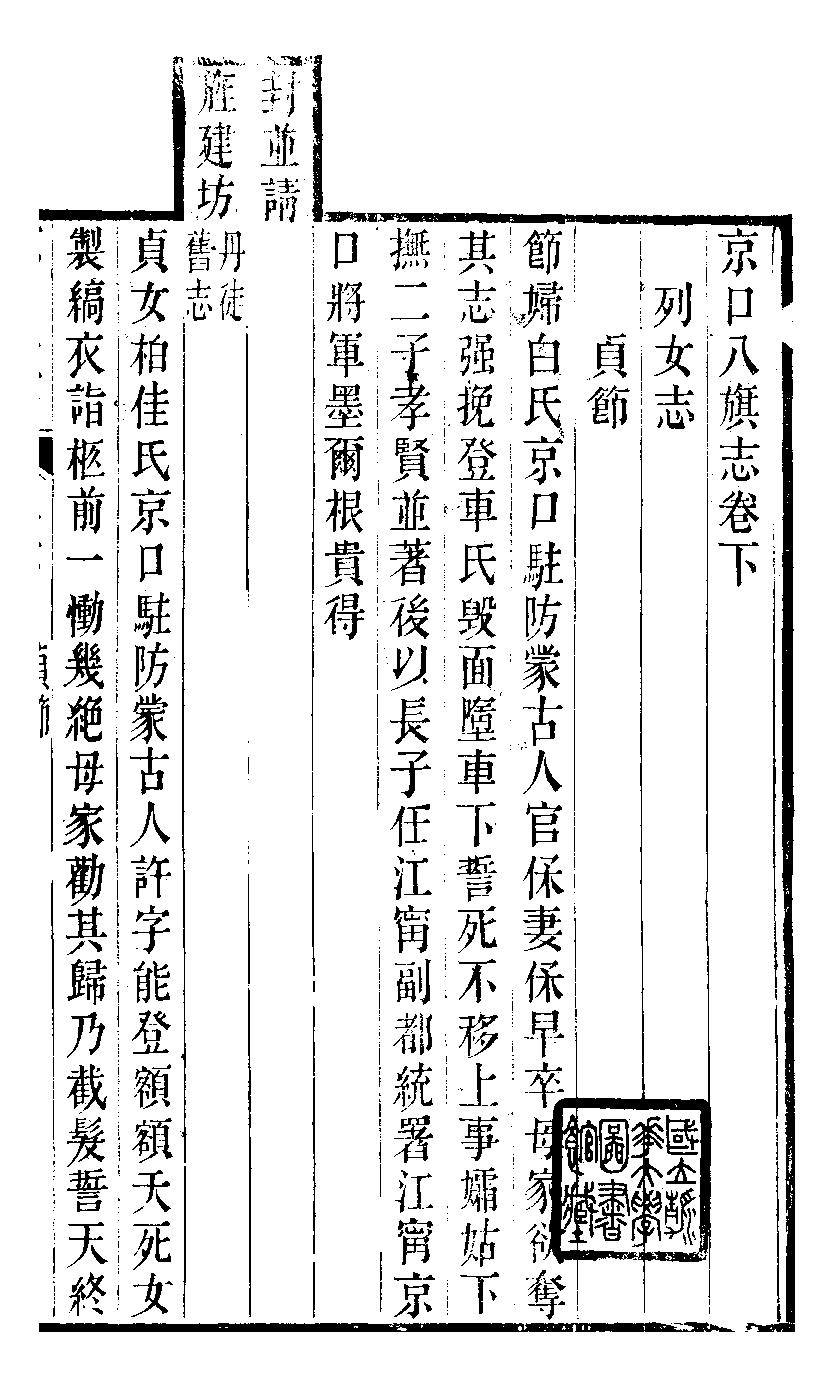 京口八旗志卷下
列女志
貞節
節婦白氏京口駐防蒙古人官保妻保早卒母家欲奪
其志强挽登車氏毀面墮車下誓死不移上事孀姑下
撫二子孝賢並著後以長子任江甯副都統署江甯京
口將軍墨爾根貴得
封並請
旌建坊丹徒
舊志
貞女柏佳氏京口駐防蒙古人許字能登額額夭死女
製縞衣詣柩前一慟幾絕母家勸其歸乃截髮誓天終
貞節
國立
大學
圖書
館藏